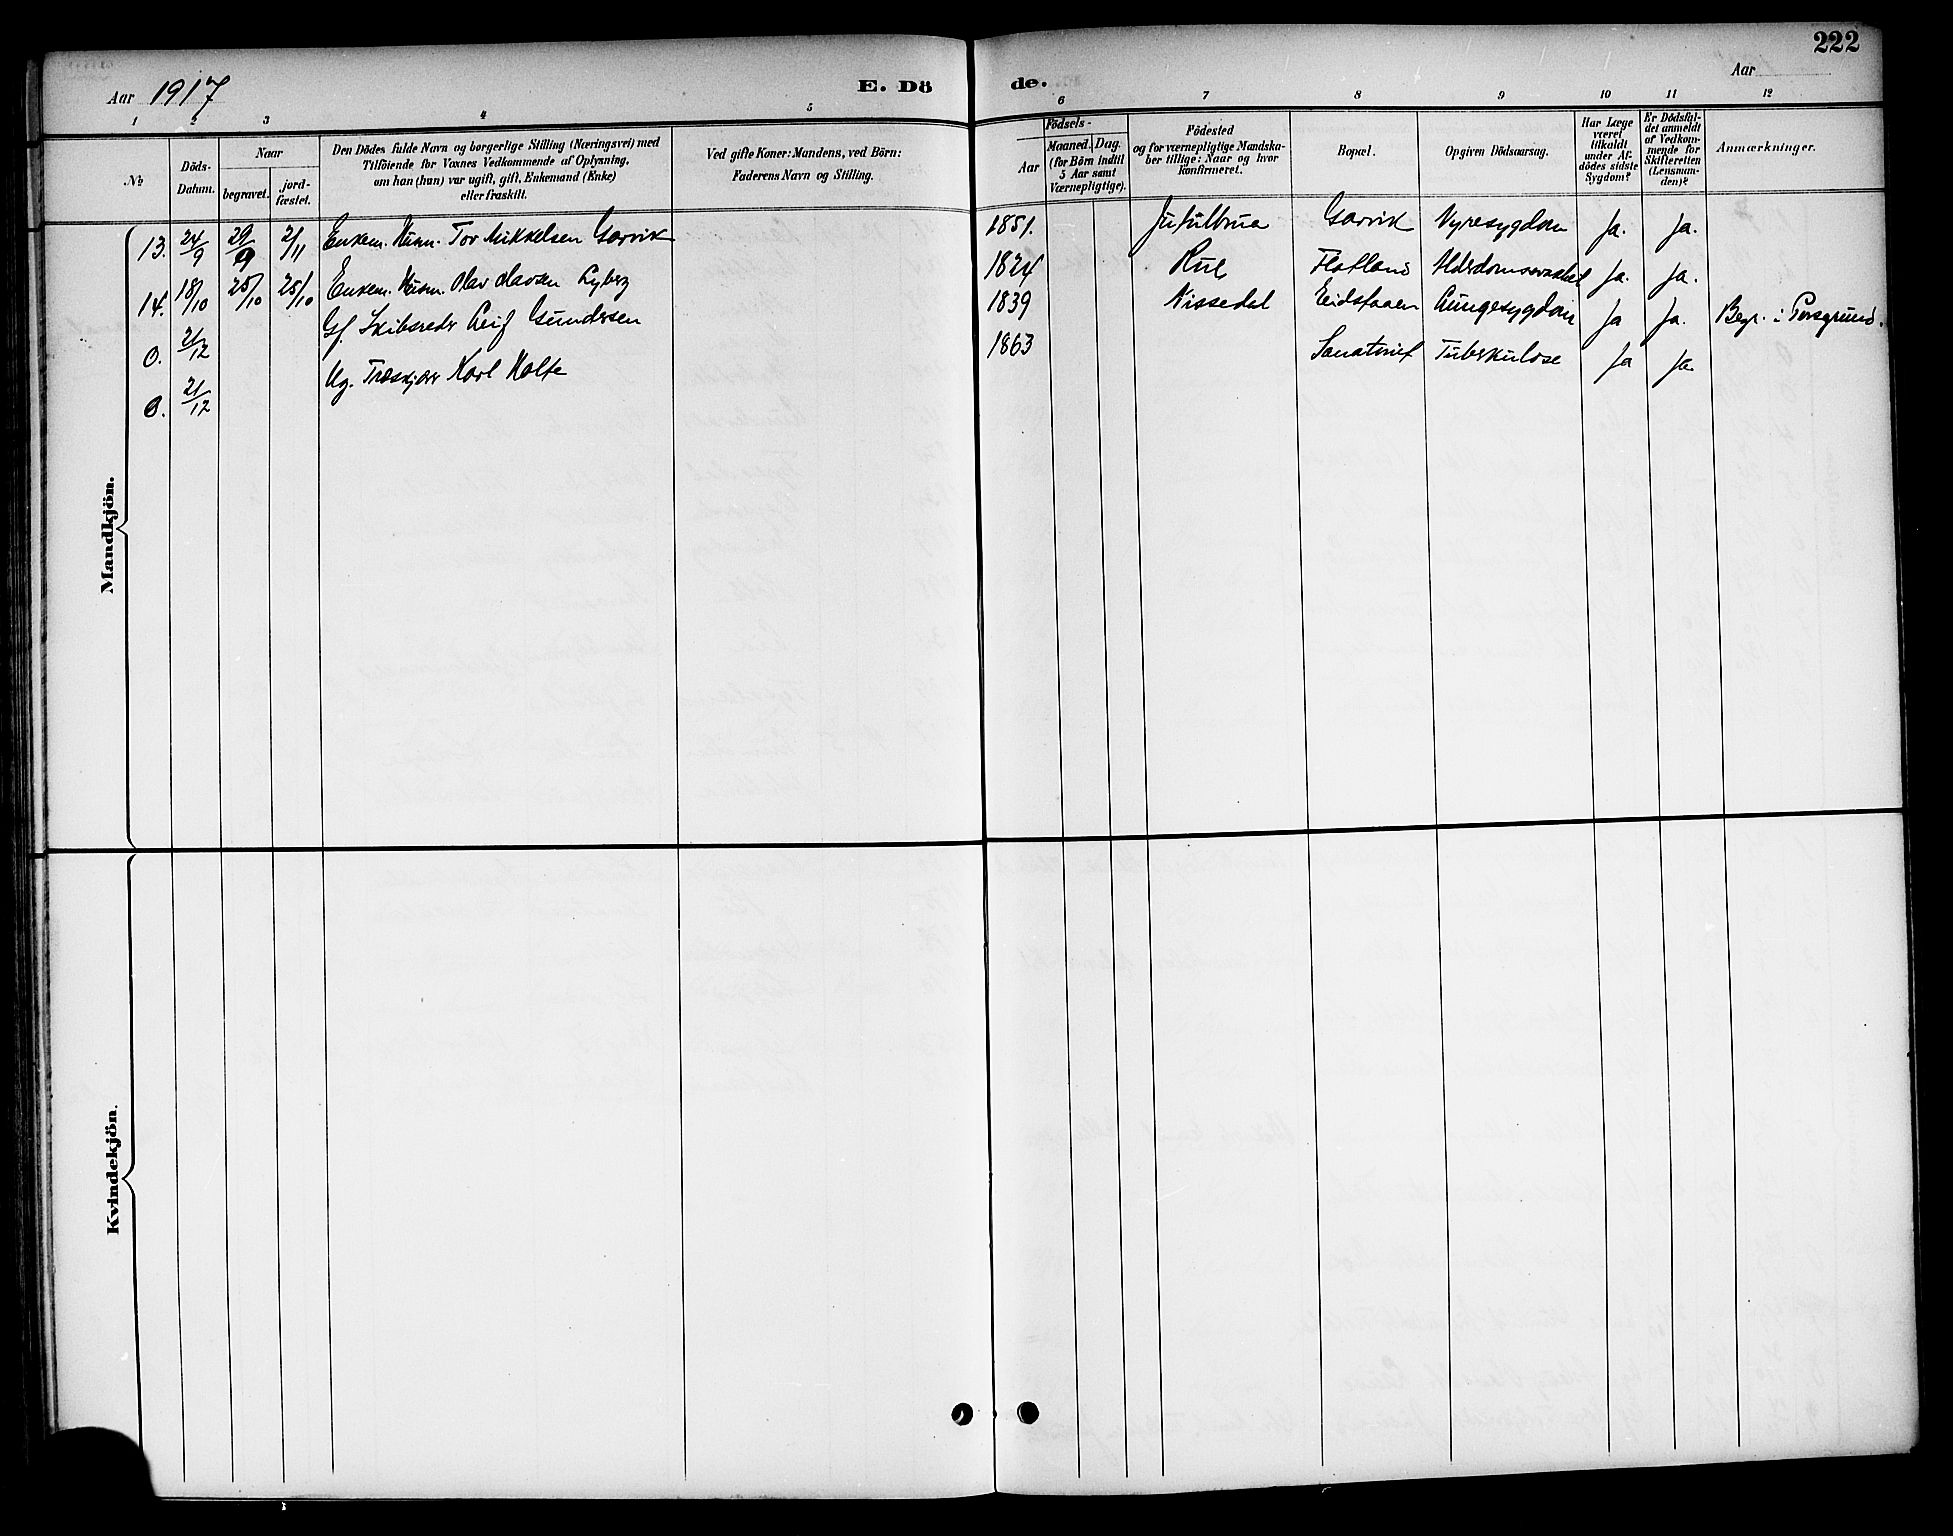 222
Aar 1917
E. Dö
de.
Aar
1 2 3 4 5 6 7 8 9 10 11 12
№
Döds-
Datum.
Naar
begravet.
jord-
fæstet.
Den Dödes fulde Navn og borgerlige Stilling (Næringsvei) med
Tilföiende for Voxnes Vedkommende af Oplysning,
om han (hun) var ugift, gift, Enkemand (Enke)
eller fraskilt.
Ved gifte Koner: Mandens, ved Börn:
Faderens Navn og Stilling.
Födsels-
Aar
Maaned. Dag.
(for Börn indtil
5 Aar samt
Værnepligtige).
Födested
og for værnepligtige Mandska-
ber tillige: Naar og hvor
konfirmeret.
Bopæl.
Opgiven Dödsaarsag.
Har Læge
været
tilkaldt
under Af-
dödes sidste
Sygdom?
Er Dödsfal-
det anmeldt
af Vedkom-
mende for
Skifteretten
(Lensman-
den)?
Anmærkninger.
Mandkjön.
13. 24/9 29/9 2/11 Enkem. Husm. Tov Mikkelsen Garvik 1851. Garvik Nyresygdom Ja. Ja.
14. 18/10 25/10 25/10 Enkem. Husm. Olav Olavsen Lyberg 1824 Flatland Ja. Ja.
0. 21/12 Gf. Skibsreder Leif Gundersen 1839 Nissedal Eidstaaen Lungesygdom Ja Ja. Begr. i Porsgrund.
0. 21/12 Ug. Træskjær Karl Holte 1863 Sanatoriet Tuberkulose Ja Ja.
Kvindekjön.